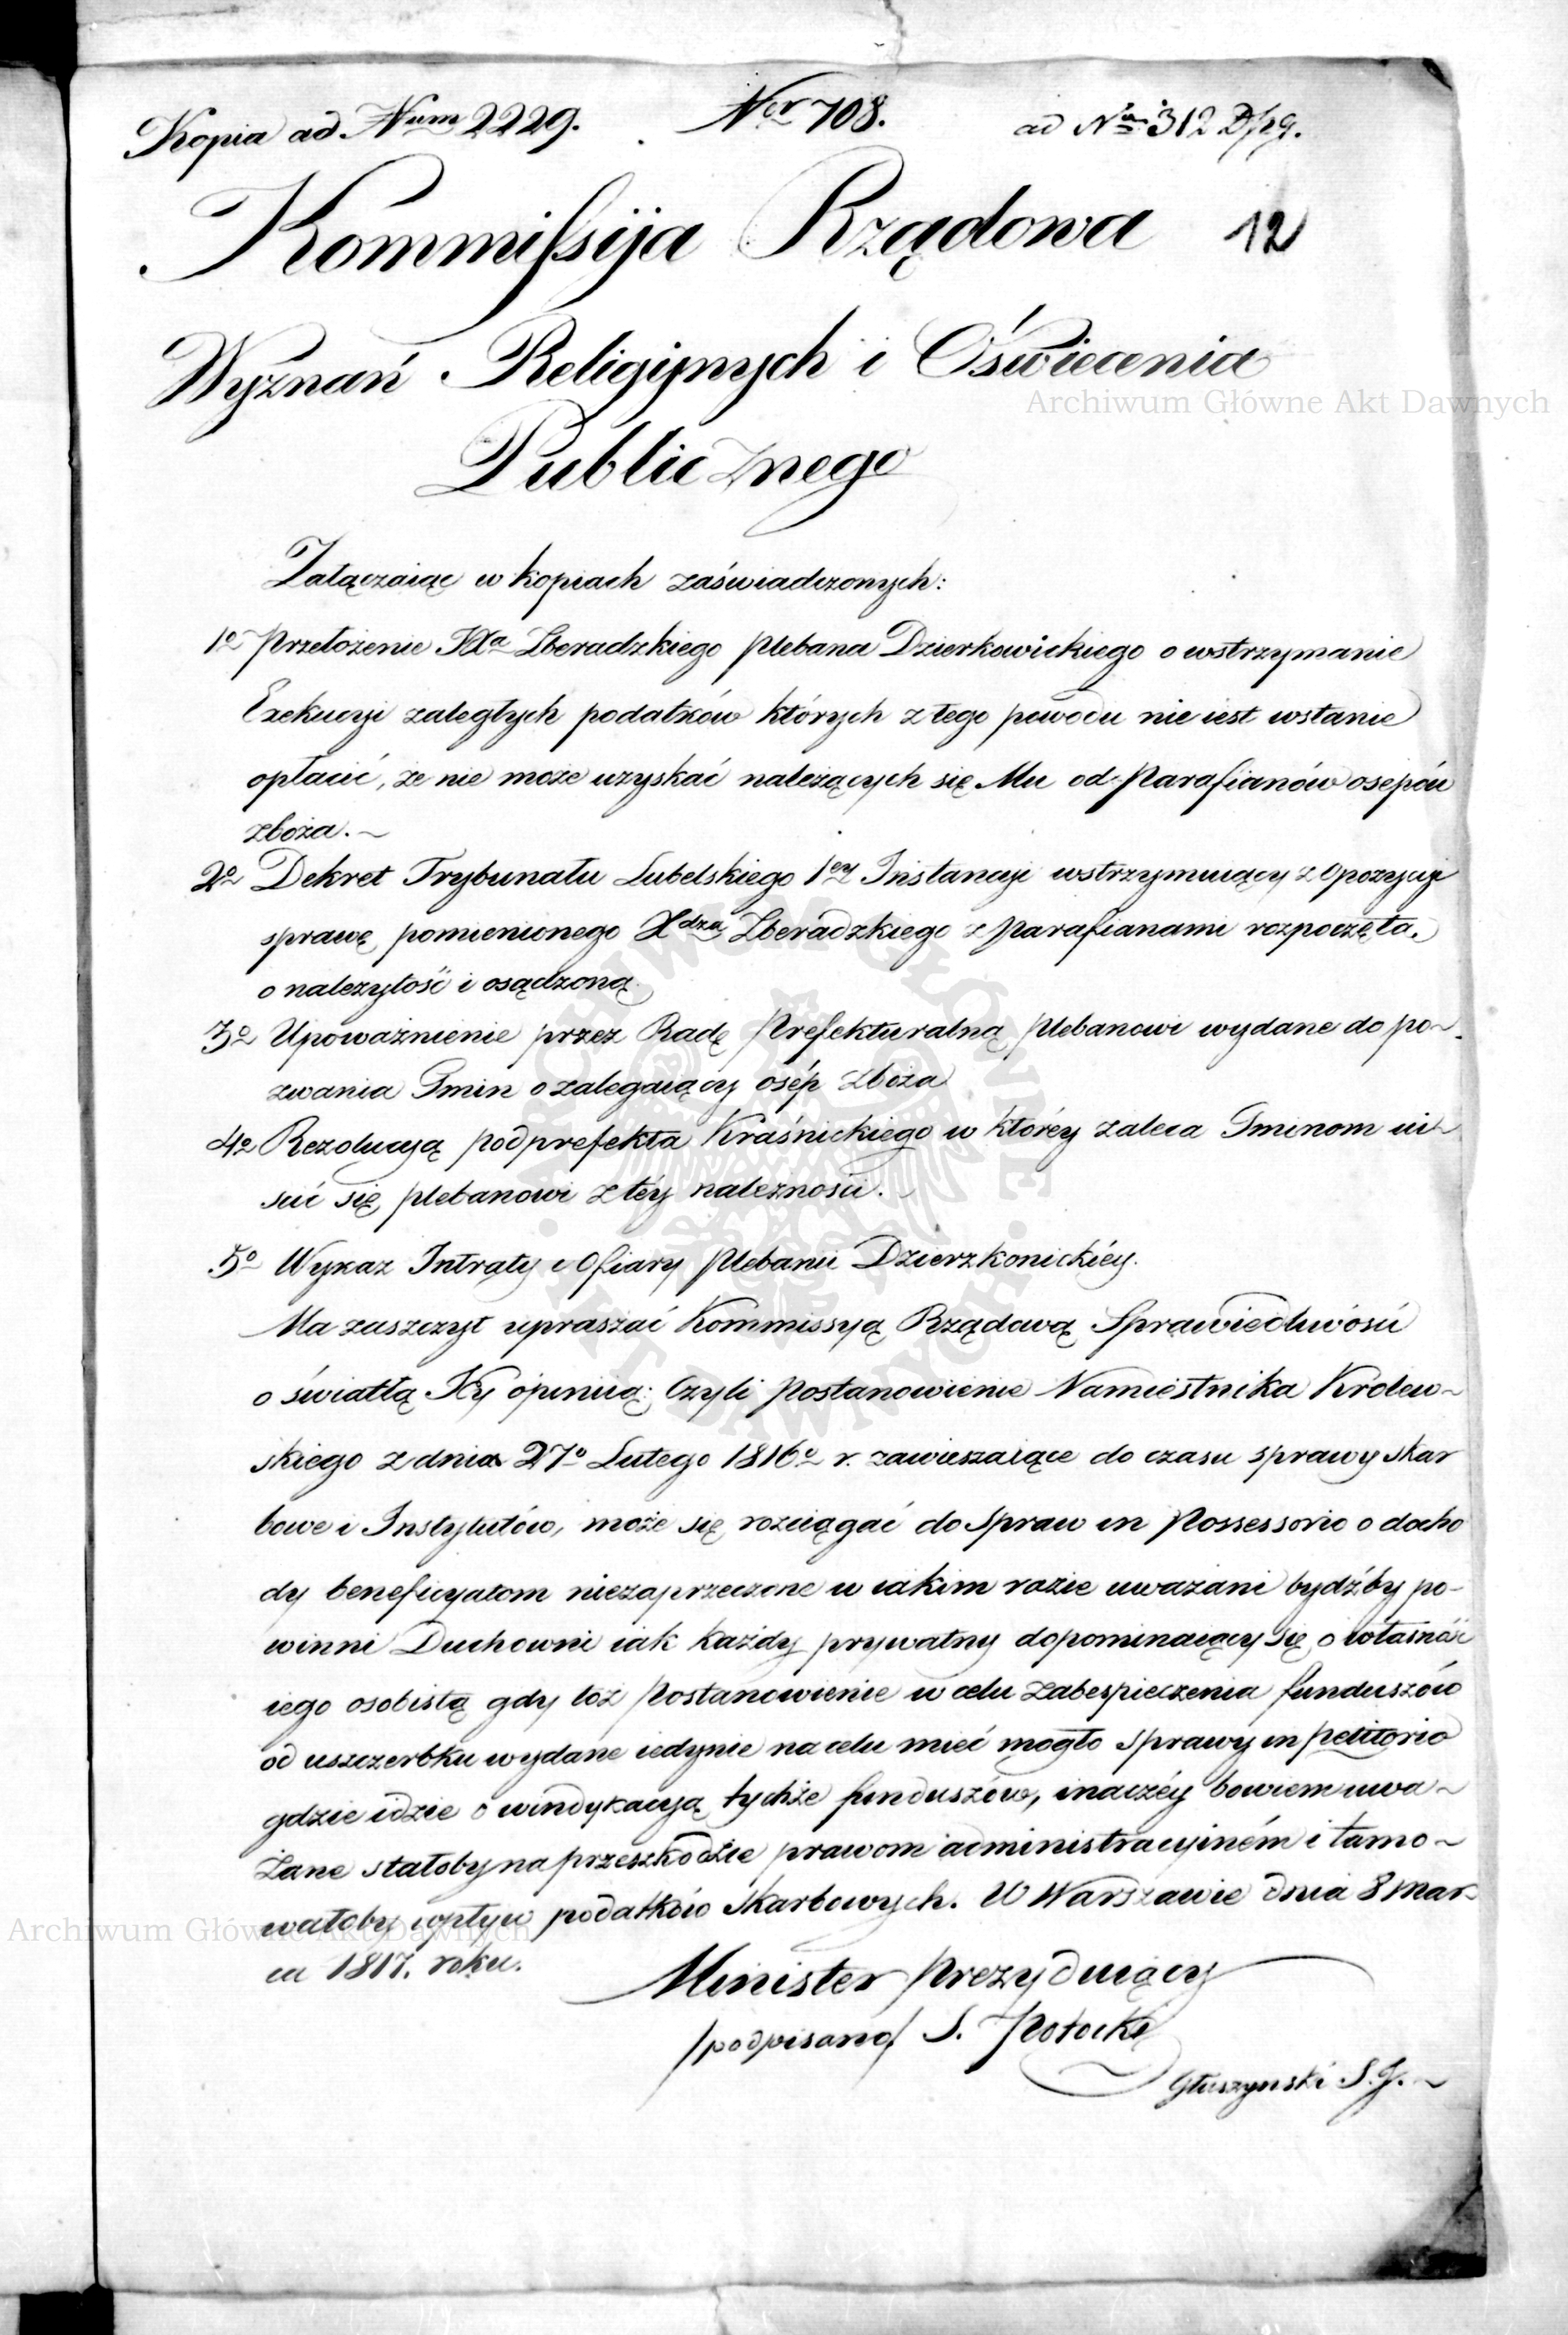 Kopia ad Num 2229. Ner 708. ad Nm 312 D/pg.
Kommissija Rządowa 12
Wyznań Religijnych i Oświecenia
Archiwum Główne Akt Dawnych
Publicznego
Załączaiąc w kopiach zaświadczonych:
1o Przełożenie Xa Zberadzkiego plebana Dzierkowickiego o wstrzymanie
Exekucyi zaległych podatków których z tego powodu nie iest wstanie
opłacić, że nie może uzyskać należących się Mu od Parafianów osepów
zboża. ~
2o Dekret Trybunału Lubelskiego 1ey Instancyi wstrzymuiący z opozycyi
sprawę pomienionego Xdza Zberadzkiego z Parafianami rozpoczętą,
o należytość i osądzoną
3o Upoważnienie przez Radę Prefekturalną plebanowi wydane do po~
zwania Gmin o zalegaiący osép zboża
4o Rezolucyą podprefekta Kraśnickiego w któréy zaleca Gminom ui~
scić się plebanowi z téy należności. ~
ARCHIWUM GŁÓWNE AKT DAWNYCH
5o Wykaz Intraty i Ofiary plebanii Dzierzkonickiéy.
Ma zaszczyt upraszać Kommissyą Rządową Sprawiedliwości
o światłą Jéy opinią: Czyli Postanowienie Namiestnika Królew~
skiego z dnia 27o Lutego 1816o r. zawieszaiące do czasu sprawy skar
bowe i Instytutów, może się rozciągać do Spraw in Possessorio o docho
dy beneficyatom niezaprzeczone w iakim razie uważani bydźby po-
winni Duchowni iak każdy prywatny dopominaiący się o własność
iego osobistą gdy toż Postanowienie w celu zabespieczenia funduszów
od uszczerbku wydane iedynie na celu mieć mogło sprawy in petitorio
gdzie idzie o windykacyą tychże funduszów, inaczéy bowiem uwa~
żane stałoby na przeszkodzie prawom administracyiném i tamo~
wałoby wpływ podatków skarbowych. W Warszawie dnia 8 Mar-
Archiwum Główne Akt Dawnych
ca 1817. roku.
Minister Prezyduiący
/podpisano/ S. Potocki
Głuszynski S. J. ~